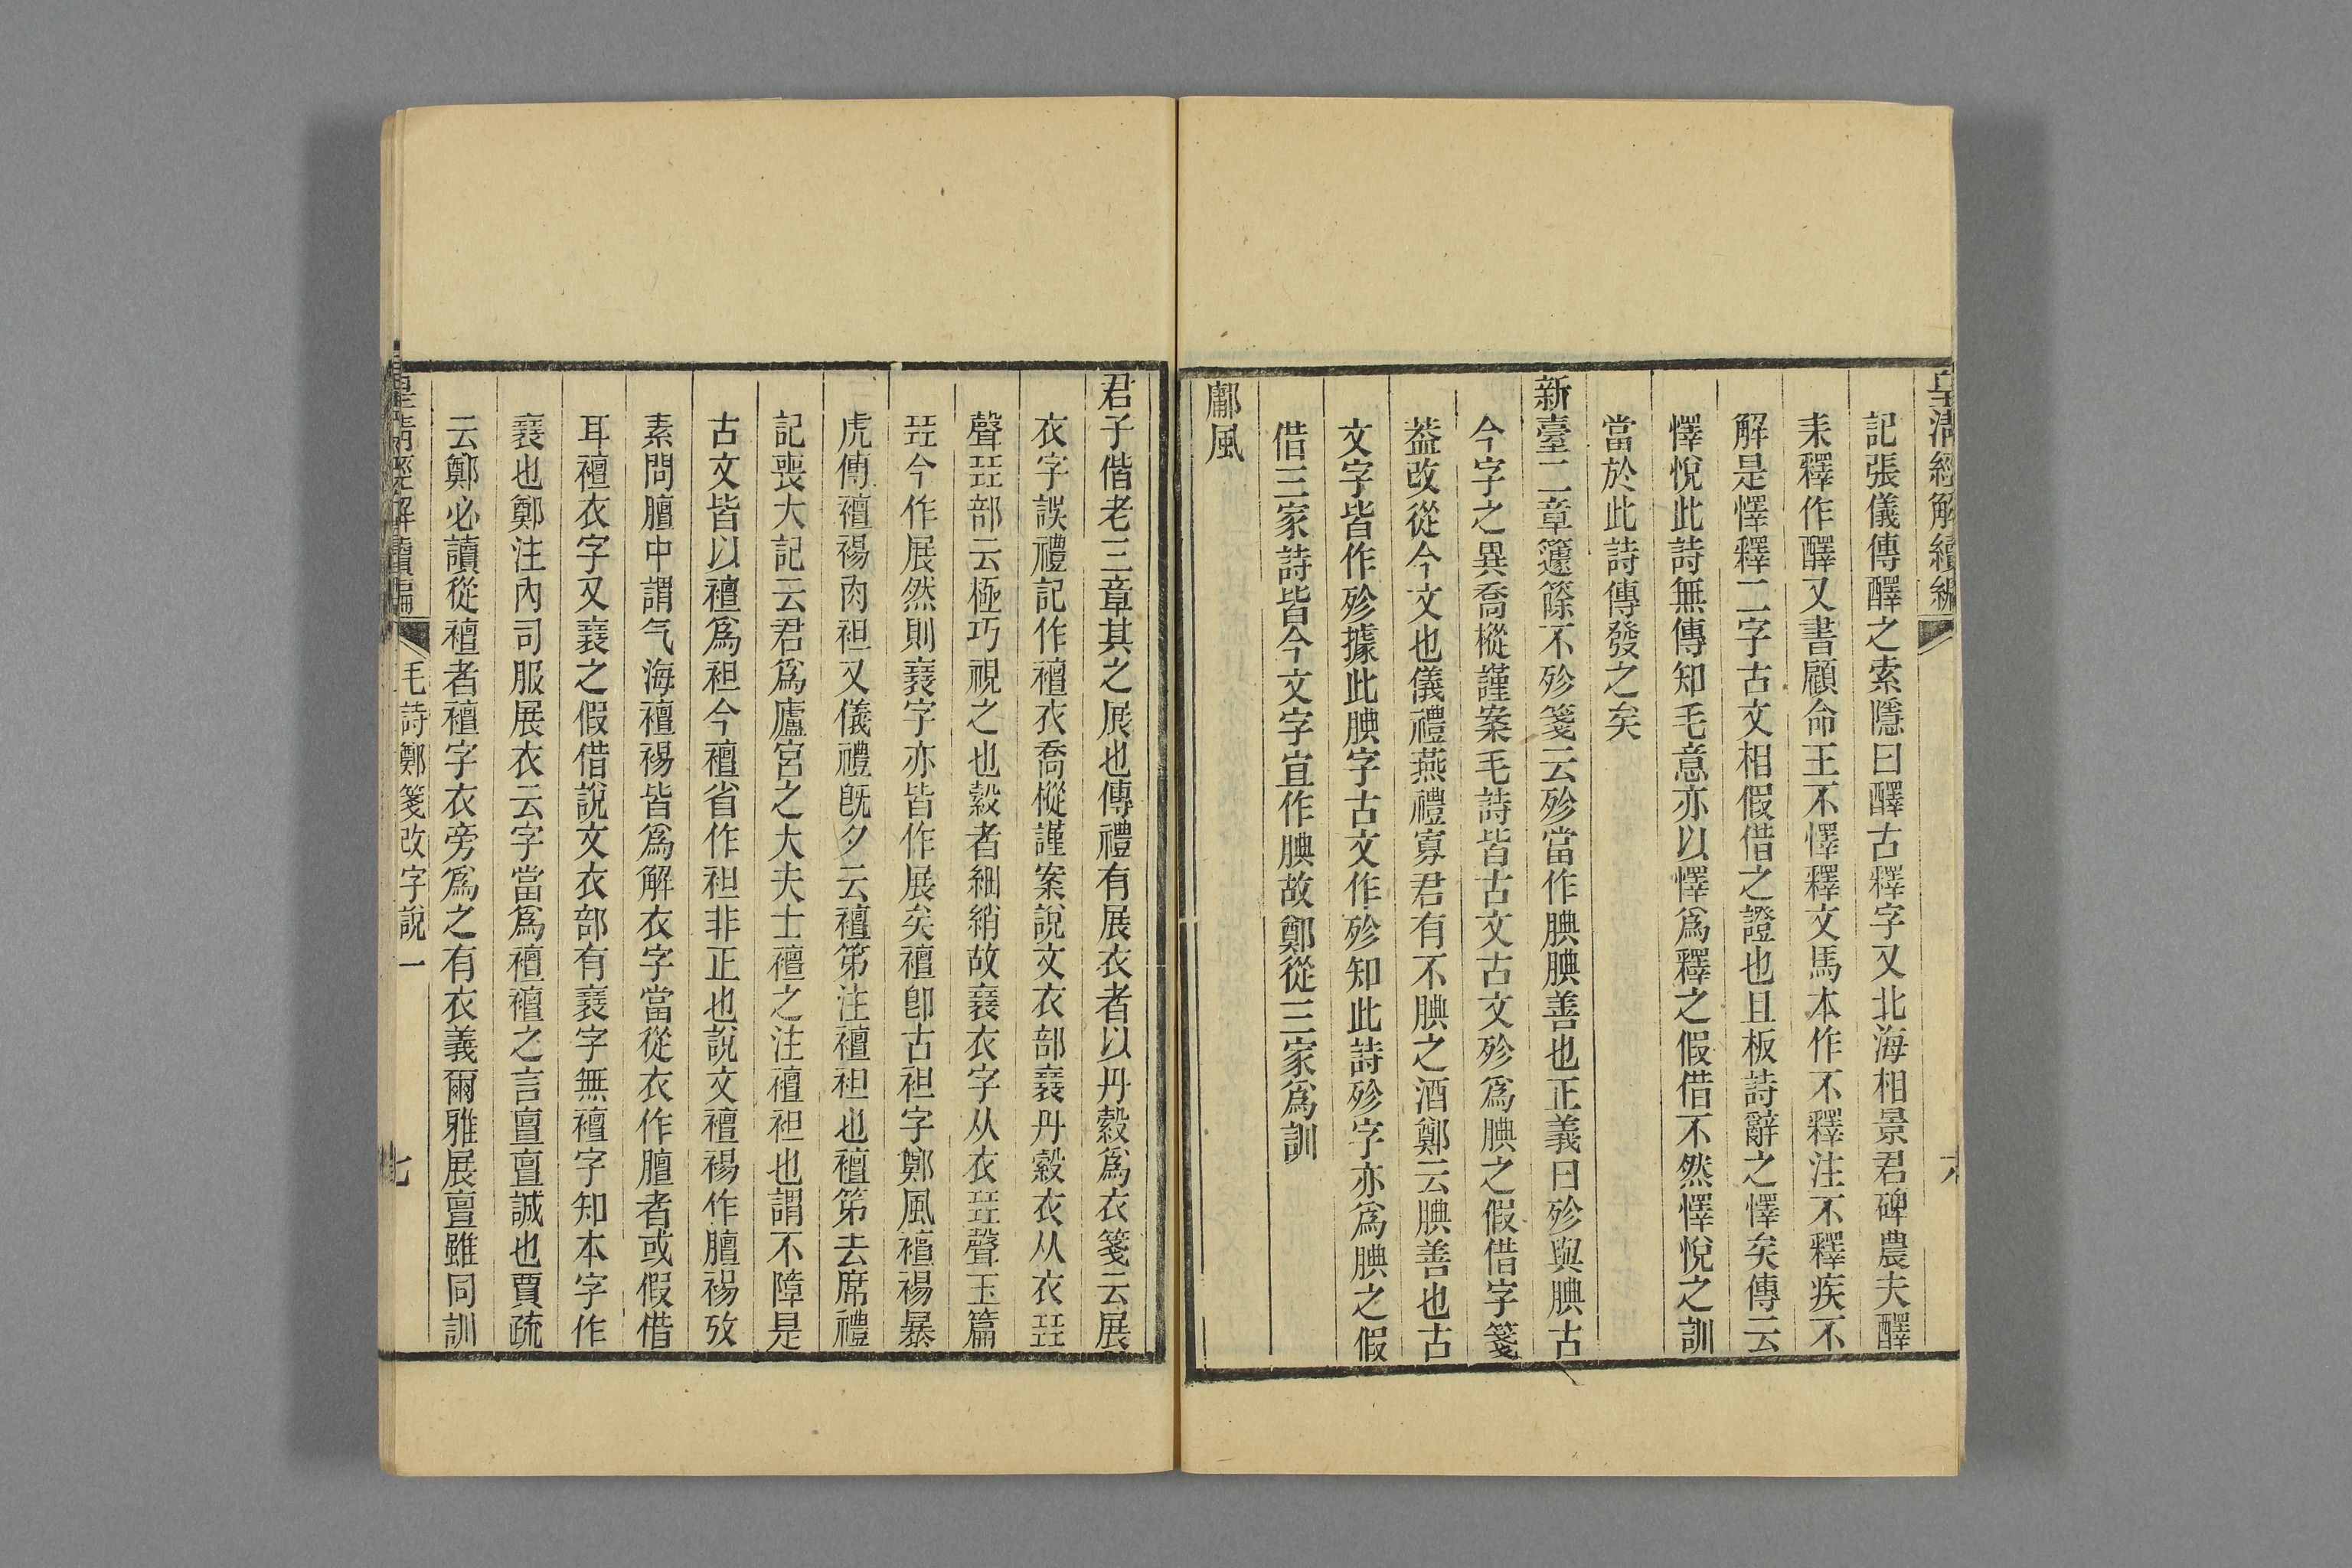 皇清經解續編
記張儀傳醳之索隱曰醳古釋字又北海相景君碑農夫醳
耒釋作醳又書顧命王不懌釋文馬本作不釋注不釋疾不
解是懌釋二字古文相假借之證也且板詩辭之懌矣傳云
懌悅此詩無傳知毛意亦以懌爲釋之假借不然懌悅之訓
當於此詩傳發之矣
新臺二章籧篨不殄箋云殄當作腆腆善也正義曰殄與腆古
今字之異喬樅謹案毛詩皆古文古文殄爲腆之假借字箋
葢改從今文也儀禮燕禮寡君有不腆之酒鄭云腆善也古
文字皆作殄據此腆字古文作殄知此詩殄字亦爲腆之假
借三家詩皆今文字宜作腆故鄭從三家爲訓
鄘風
君子偕老三章其之展也傳禮有展衣者以丹縠爲衣箋云展
衣字誤禮記作襢衣喬樅謹案說文衣部襄丹縠衣从衣㠭
聲㠭部云極巧視之也縠者細絹故襄衣字从衣㠭聲玉篇
㠭今作展然則襄字亦皆作展矣襢卽古袒字鄭風襢裼暴
虎傳襢裼肉袒又儀禮旣夕云襢笫注襢袒也襢笫去席禮
記喪大記云君爲廬宮之大夫士襢之注襢袒也謂不障是
古文皆以襢爲袒今襢省作袒非正也說文襢裼作膻裼攷
素問膻中謂气海襢裼皆爲解衣字當從衣作膻者或假借
耳襢衣字又襄之假借說文衣部有襄字無襢字知本字作
襄也鄭注內司服展衣云字當爲襢襢之言亶亶誠也賈疏
云鄭必讀從襢者襢字衣旁爲之有衣義爾雅展亶雖同訓
皇清經解續編
毛詩鄭箋改字說一
七